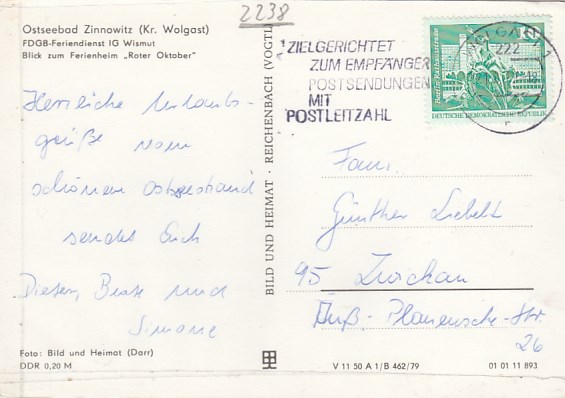 2238
Ostseebad Zinnowitz (Kr. Wolgast)
FDGB-Feriendienst IG Wismut
Blick zum Ferienheim „Roter Oktober"
Herzliche Urlaubs-
grüße vom
schönen Ostseestrand
sendet Euch
Dieter, Beate und
Simone
Foto: Bild und Heimat (Darr)
DDR 0,20 M
BILD UND HEIMAT · REICHENBACH (VOGTL)
ZIELGERICHTET
ZUM EMPFÄNGER
POSTSENDUNGEN
MIT
POSTLEITZAHL
WOLGAST
222
10
Berlin, Rathausstraße
DEUTSCHE DEMOKRATISCHE REPUBLIK
Fam.
Günther Liebelt
95 Zwickau
Äuß.-Planensche-Str.
26
V 11 50 A 1/B 462/79
01 01 11 893